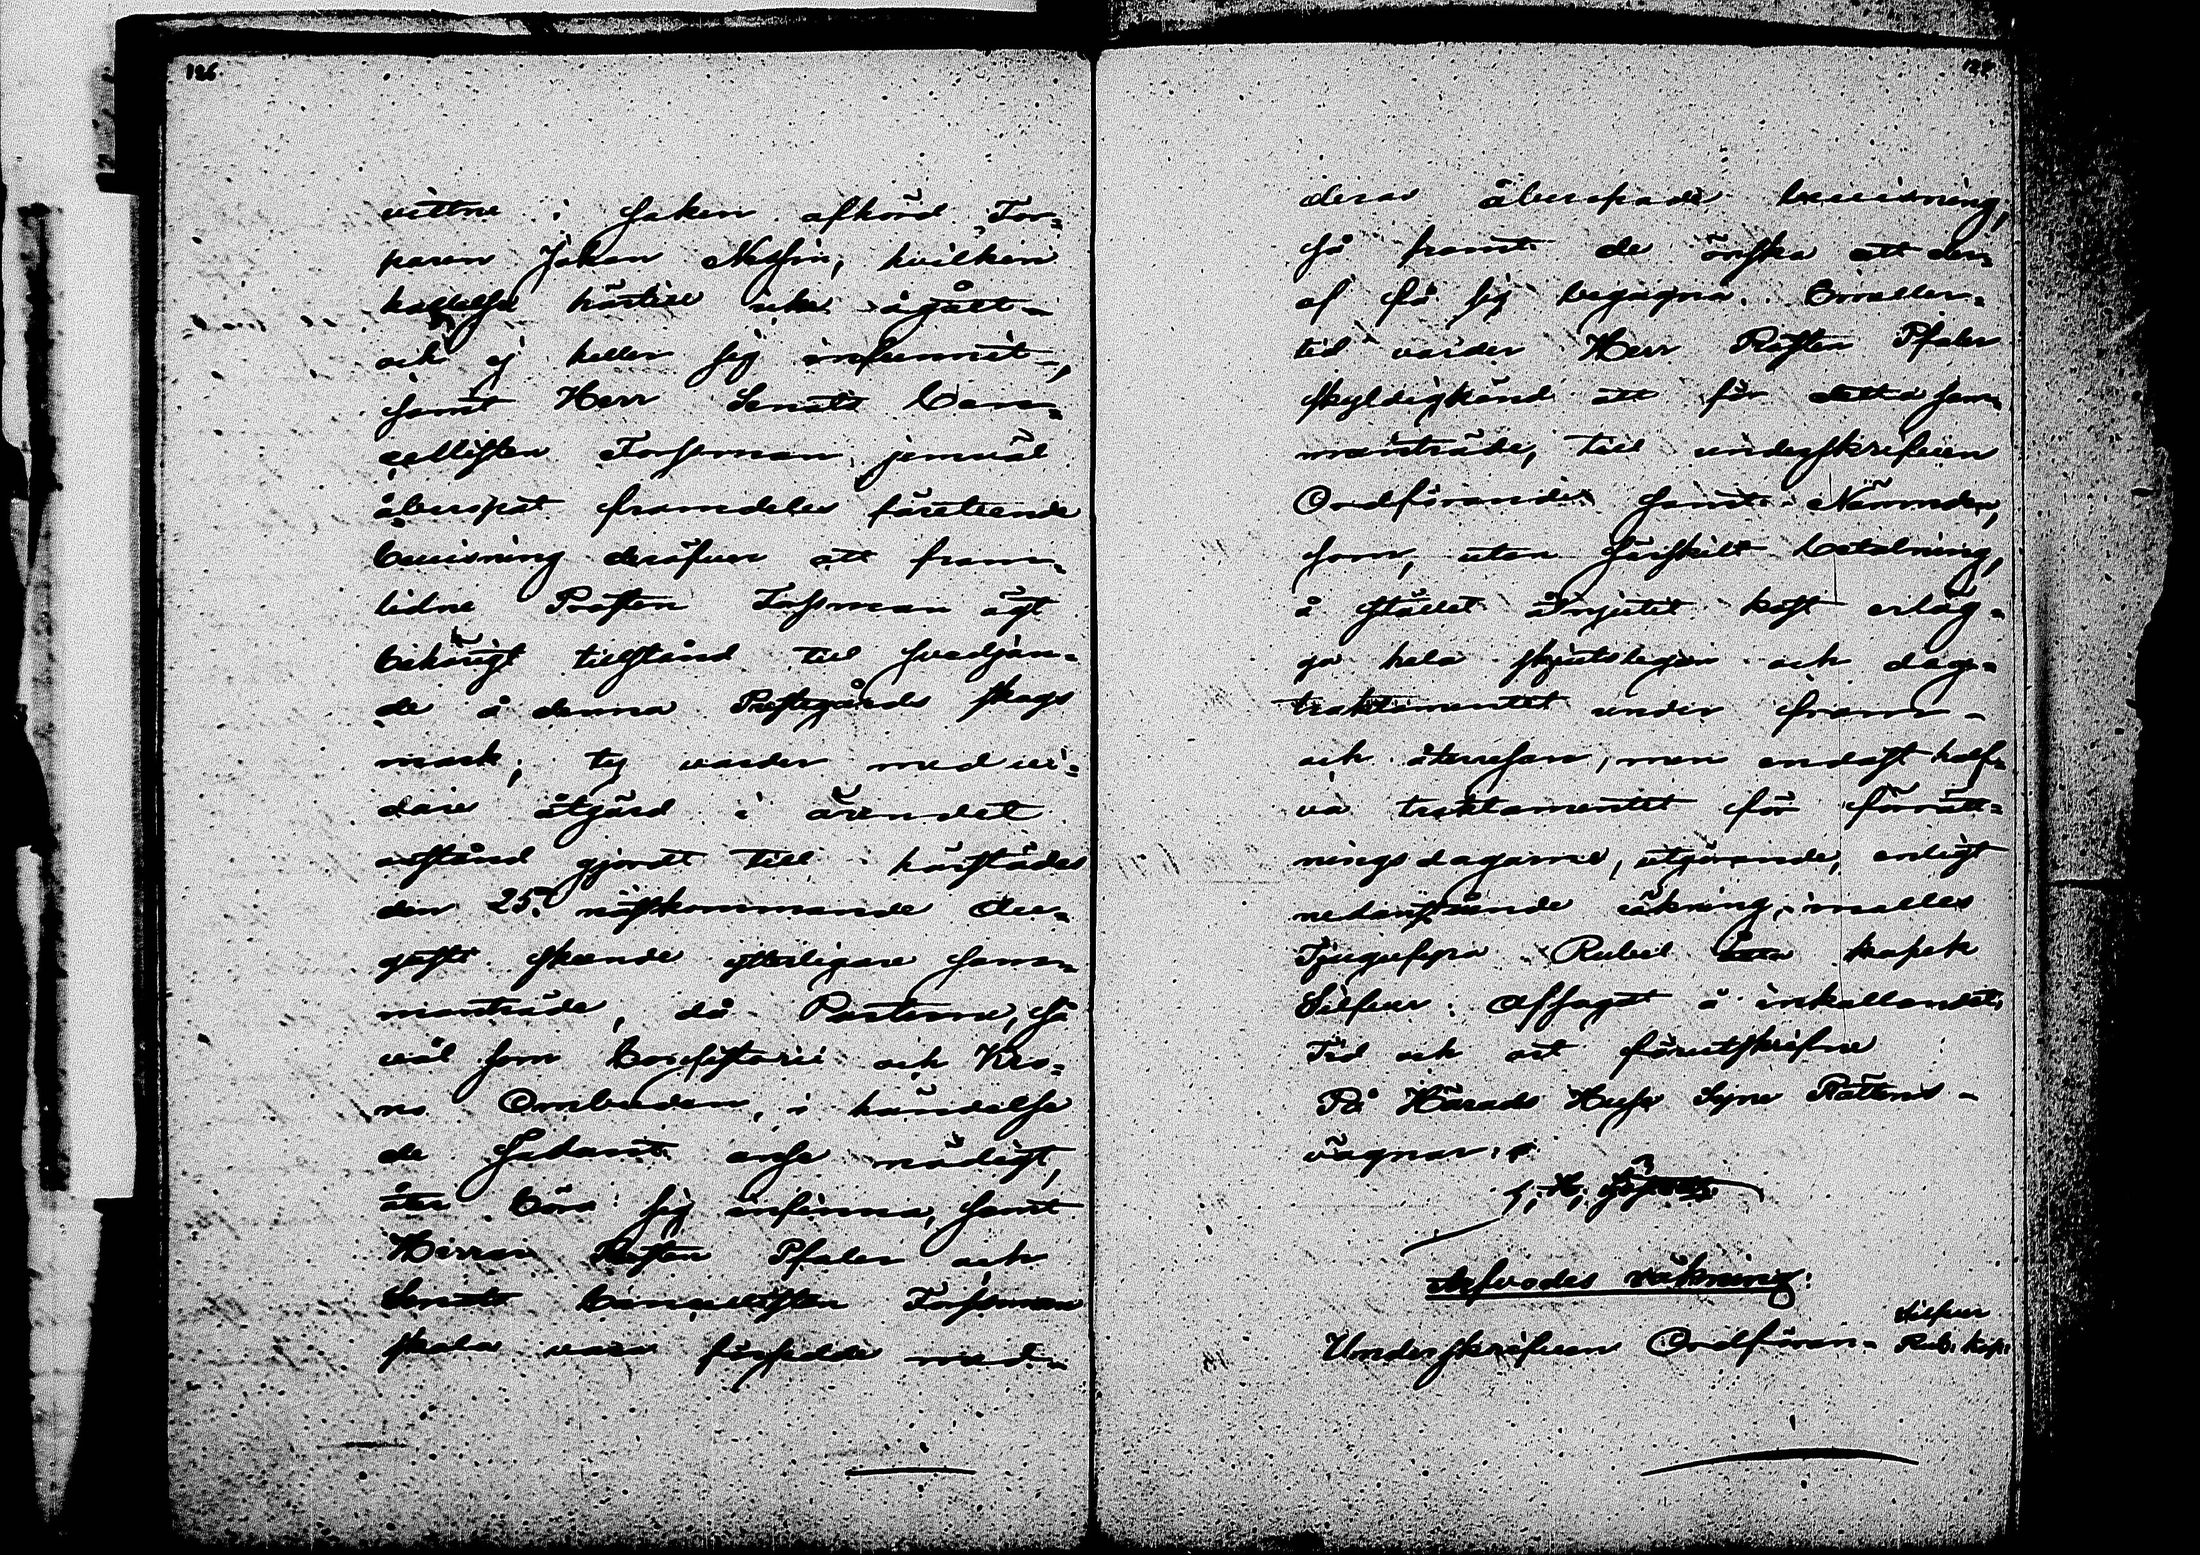 126.
vittne i saken afhörd Tor-
paren Johan Nissin, hvilken
kallelse härtill icke ågått
och ej heller sig infunnit,
samt Herr Senats Can-
cellisten Forssman jemväl
åberopat framdeles företeende
bevisning deröfver att fram-
lidne Prosten Forssman ägt
behörigt tillstånd till svedjan-
de å denna Prestegårds skogs
mark, ty varder med vi-
dare åtgärd i ärendet
anstånd gjordt till härstädes
den 25 nästkommande Au-
gusti skeende ytterligare sam-
manträde, då Parterne, så
väl som Consistorii och Kro-
no Ombuden, i händelse
de sådant anse nödigt,
åter böra sig infinna, samt
Herrar Prosten Pfaler och
Senats Cancellisten Forssman
skola vara försedde med
deras åberopade bevisning,
så framt de önska att der-
af få sig begagna. Emeller-
tid varder Herr Prosten Pfaler
skyldigkänd att för detta sam-
manträde, till underskrifven
Ordförande samt Nämnden,
som, utan särskilt betalning,
å stället åtnjutit kost erläg-
ga hela skjutslegan och dag-
traktamentet under fram-
och återresan, men endast half-
va traktamentet för förrätt-
ningsdagarne, utgörande, enligt
nedanstående räkning, inalles
Tjugufyra Rubel kopek
Silfver. Afsagdt å inkallandet,
Tid och ort förutskrifne
På Härads Husesyne Rättens
vägnar:
Arfvodes räkning:
Silfver
Underskrifven Ordföran- Rub. kop.